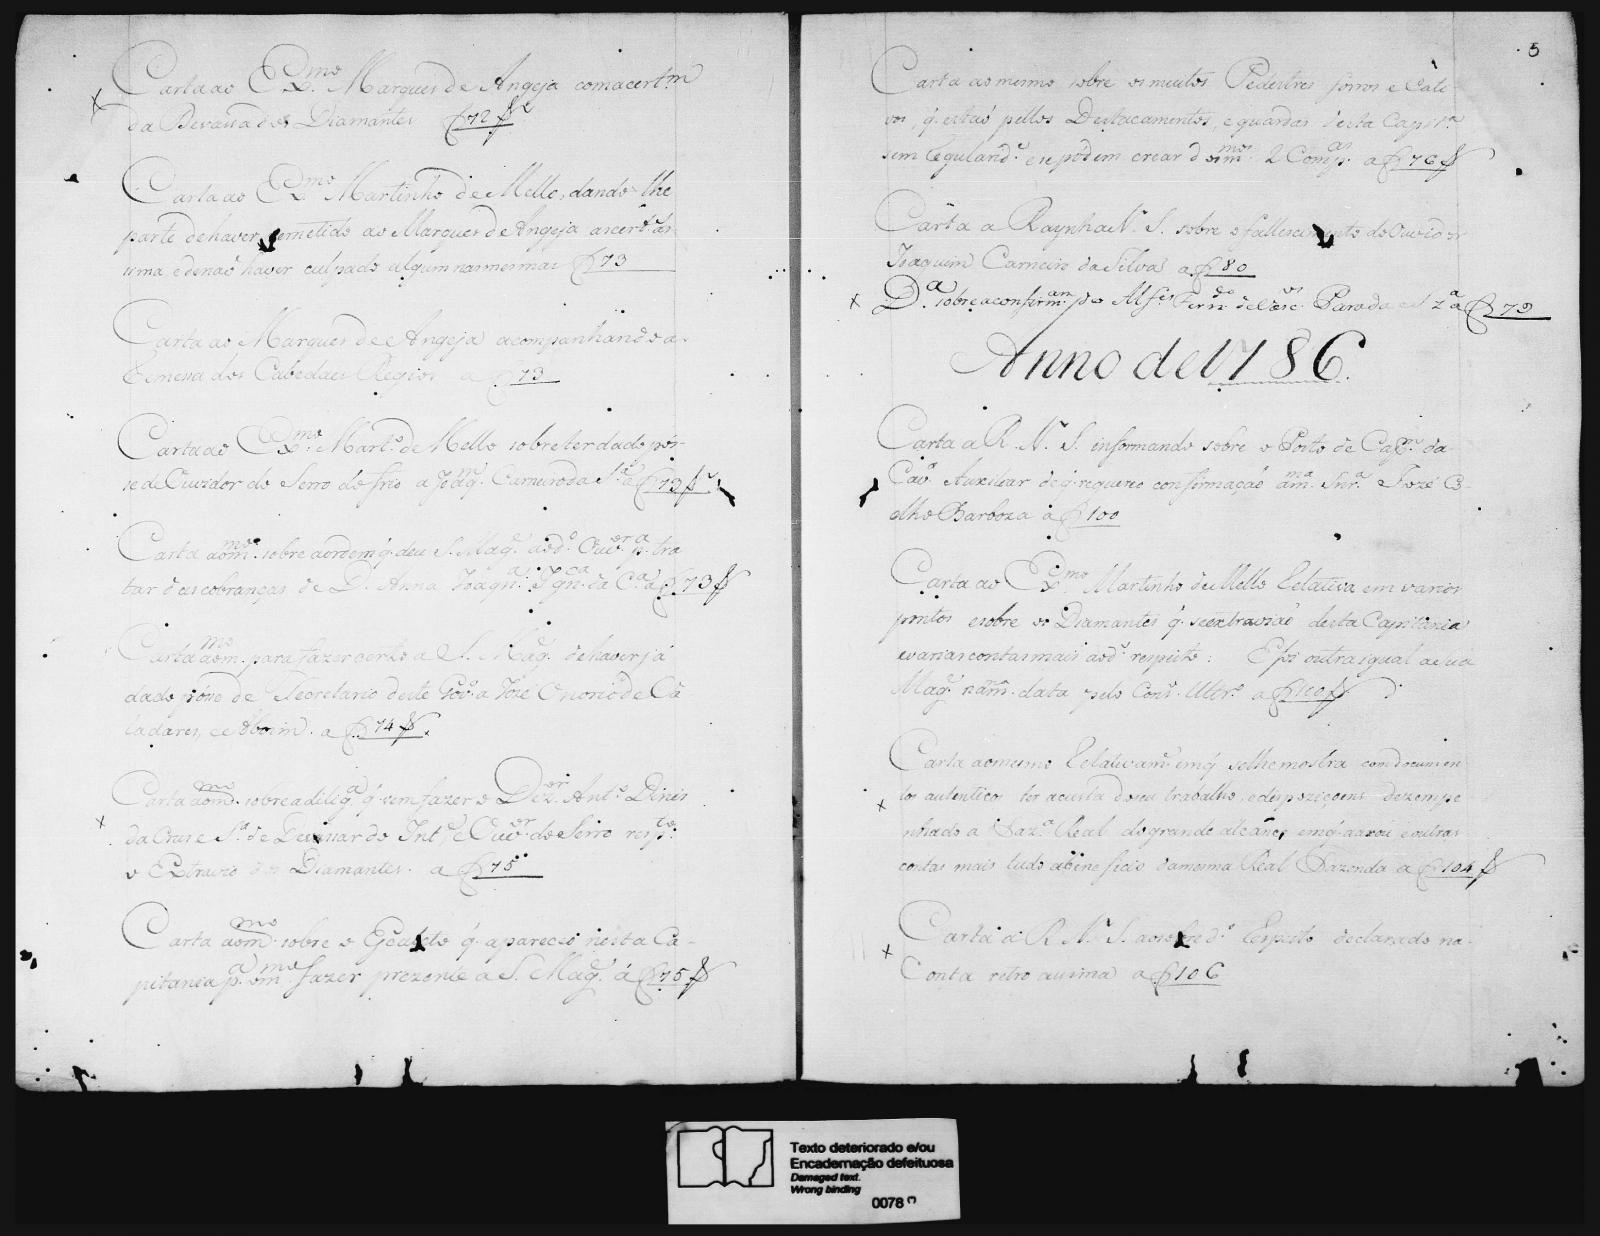 Carta ao Ex.mo Marques de Angeja com a cert.m
da Devassa dos Diamantes f 72 ỷ
Carta ao Ex.mo Martinho de Mello, dando-lhe
parte de haver remetido ao Marques de Angeja as cert.ões
uma e de naõ haver culpado algum nas mesmas f 73
Carta ao Marques de Angeja acompanhando a
Remessa dos Cabedaes Regios a f 73
Carta ao Ex.mo Mart.o de Mello sobre ter dado pos-
se de Ouvidor do Serro do frio a Joaq.m Carneiro da S.a a f 73
Carta ao m.mo sobre a ordem q. deu S. Mag.e ao d.o Ouv.or p.a tra
tar das cobranças de D. Anna Joaqn.a Ign.ca da C.a a f 73
Carta ao m.mo para fazer certo a S. Mag.e de haver já
dado posse de Secretario deste Gov.o a José Onorio de Va
ladares, e Aboim. a f 74
Carta ao m.mo sobre a dilig.a q. vem fazer o Dez.or Ant.o Diniz
da Cruz e S.a de Devassar do Int.e e Ouv.or do Serro resp.to
o Extravio dos Diamantes. a f 75
Carta ao m.mo sobre o q. apareceo nesta Ca-
pitania p.a o m.mo fazer prezente a S. Mag.e á f 75
5
Carta ao mesmo sobre os muitos Pedestres forros e Cati
vos q. estaõ pellos Destacamentos, e guardas desta Capit.a
sem e se podem crear d os m.mos 2 Comp.as a f 76
Carta a Raynha N. S. sobre o fallescimento do Ouvidor
Joaquim Carneiro da Silva a f 80
D.a sobre a confirm.am do Alf.es Fern.do de Vasc.os Parada e S.za a f 79
Anno de 1786.
Carta a R. N. S. informando sobre o Posto de Cap.m da
Cav.a Auxiliar de q. requereo confirmaçaõ a m.ma Snr.a José Co-
elho Barboza a f 100
Carta ao Ex.mo Martinho de Mello Relativa em varios
pontos e sobre os Diamantes q. se extraviaõ desta Capitania
e varias contas mais ao d.o respeito: E foi outra igual a sua
Mag.e na m.ma data pelo Cons.o Ultr.o a f 100
Carta ao mesmo Relativam.e em q. se lhe mostra com documen
tos autenticos ter a custa do seu trabalho, e despoziçoens dezempe
nhado a Faz.a Real do grande alcance em q. a axou e outras
contas mais tudo a beneficio da mesma Real Fazenda a f 104
Carta á R. N. S. ao sobred.o Respeito declarado na
Conta retro assima a f 106
Texto deteriorado e/ou
Encadernação defeituosa
Damaged text.
Wrong binding
0078